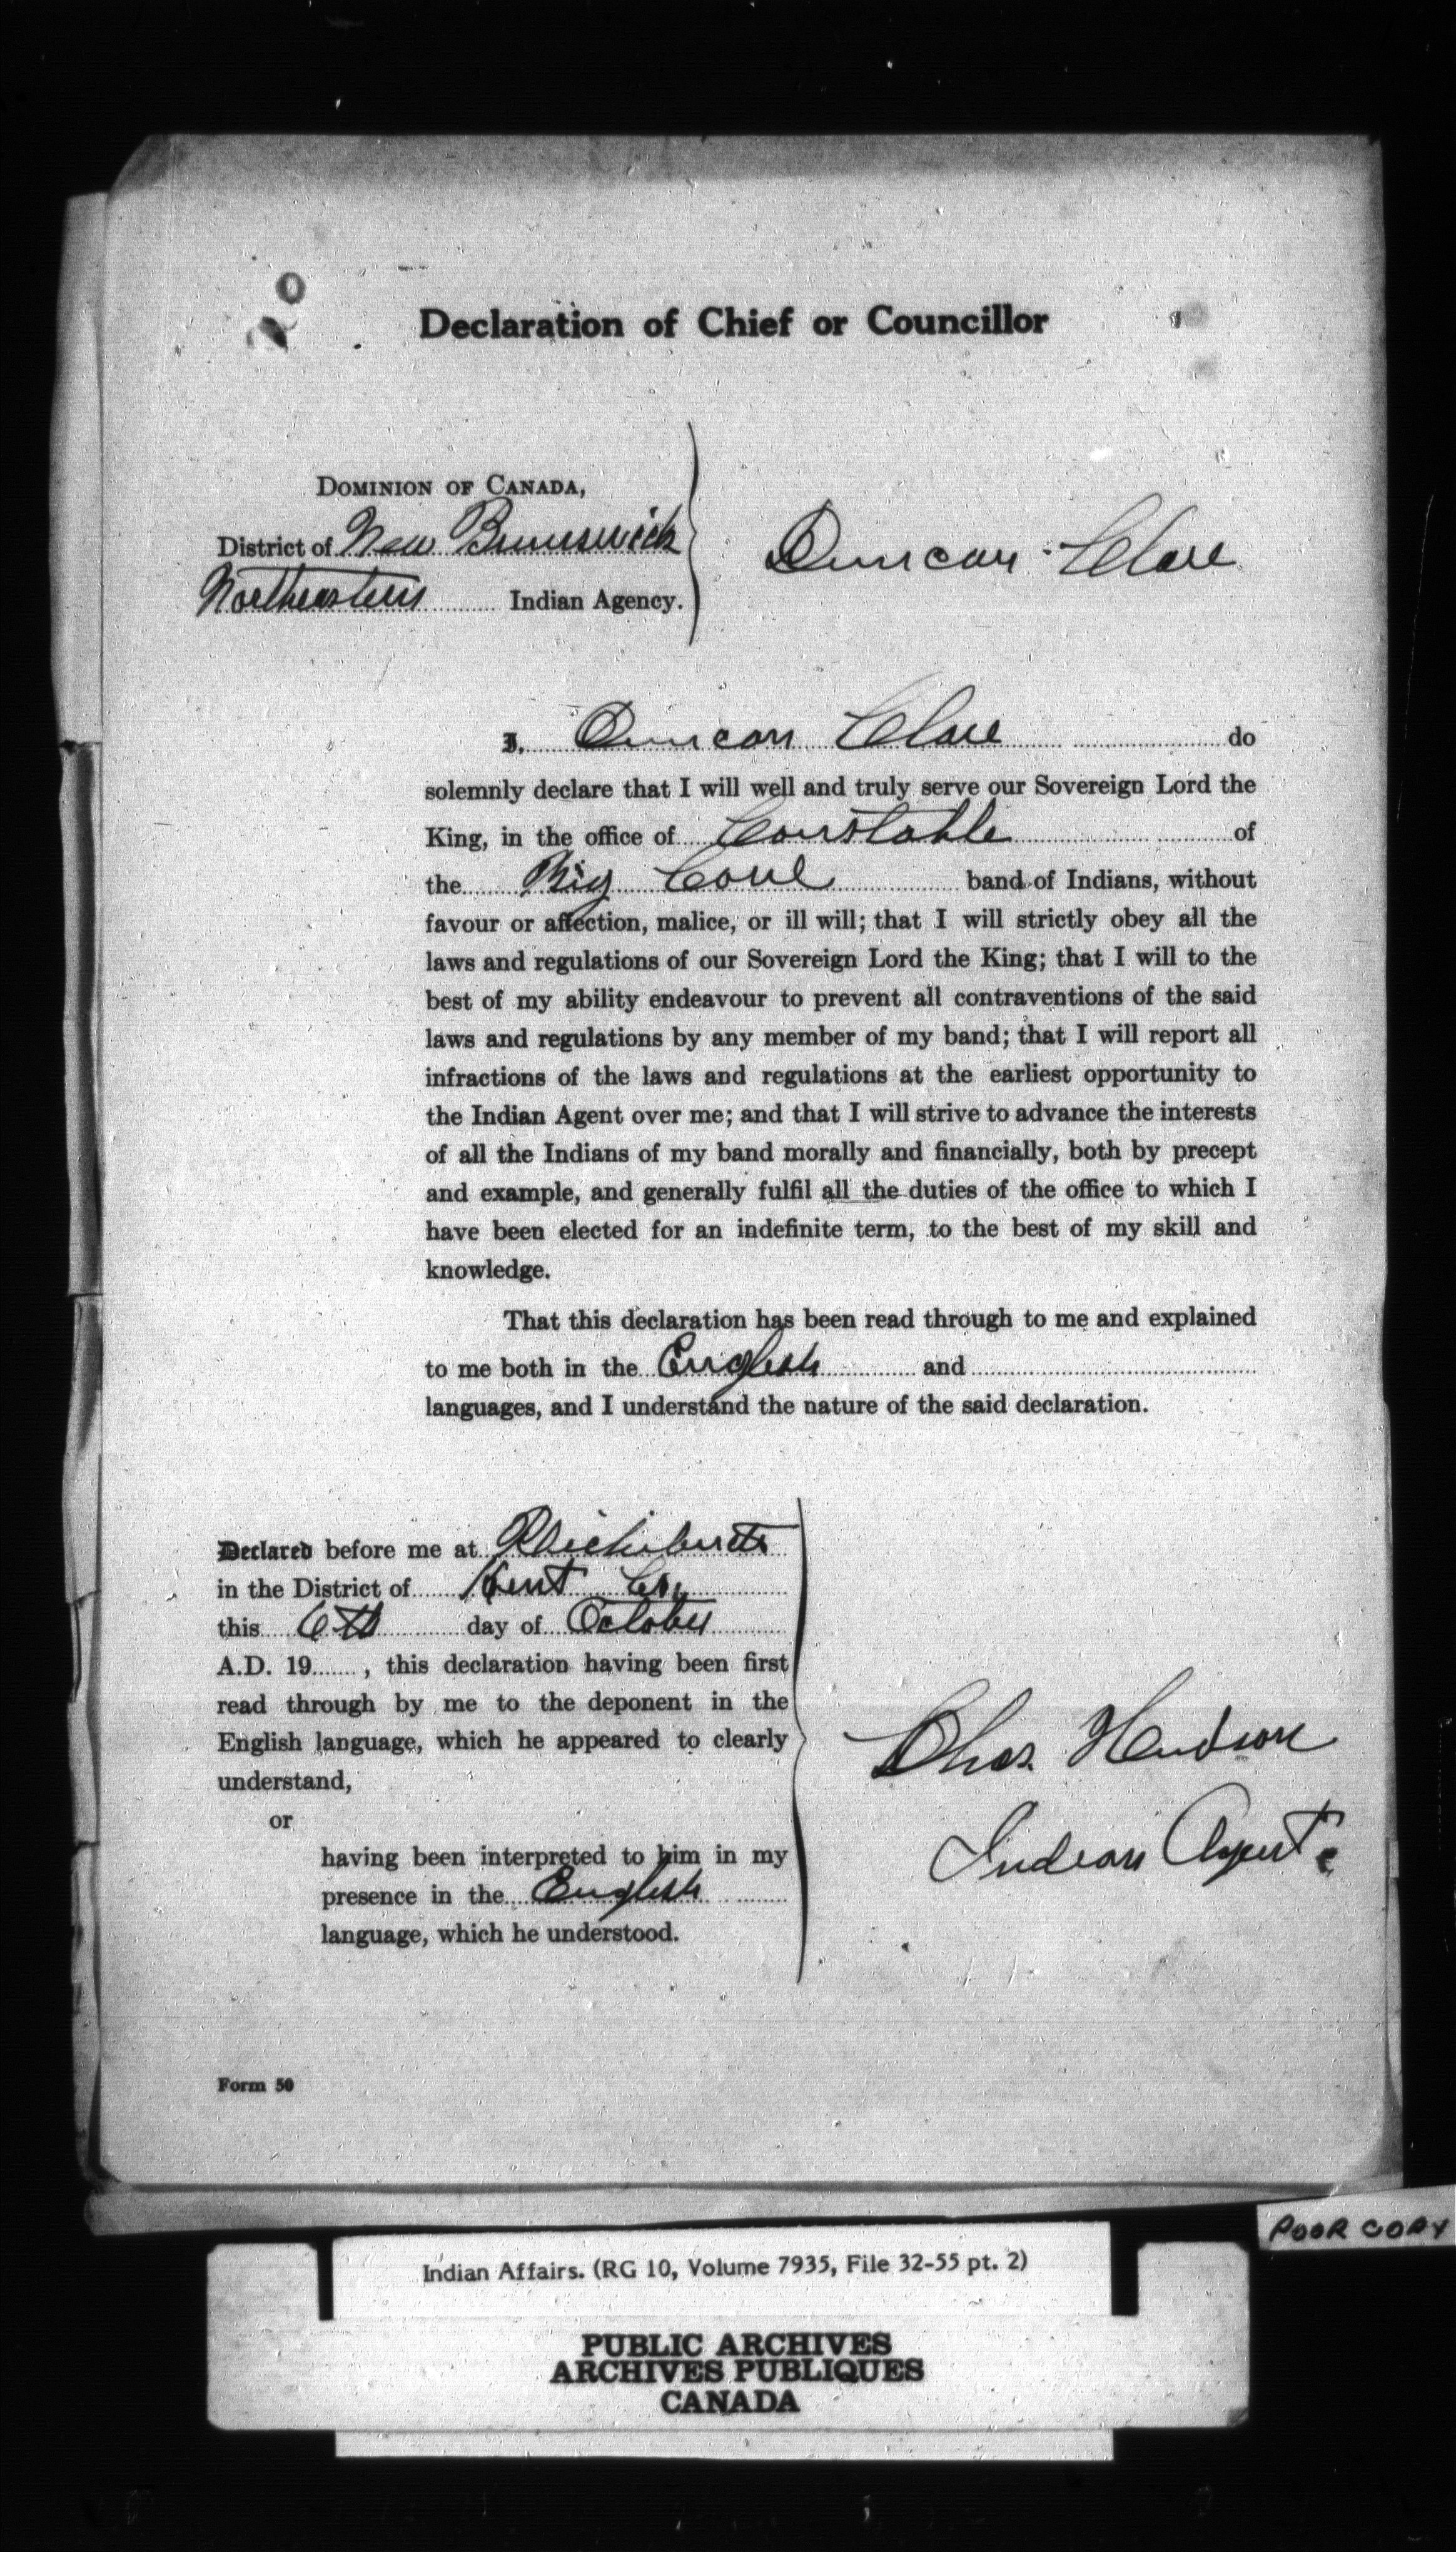 Declaration of Chief or Councillor
DOMINION OF CANADA,
District of New Brunswick
Northeastern Indian Agency.
Duncan Clare
I, Duncan Clare do
solemnly declare that I will well and truly serve our Sovereign Lord the
King, in the office of Constable of
the Big Cove band of Indians, without
favour or affection, malice, or ill will; that I will strictly obey all the
laws and regulations of our Sovereign Lord the King; that I will to the
best of my ability endeavour to prevent all contraventions of the said
laws and regulations by any member of my band; that I will report all
infractions of the laws and regulations at the earliest opportunity to
the Indian Agent over me; and that I will strive to advance the interests
of all the Indians of my band morally and financially, both by precept
and example, and generally fulfil all the duties of the office to which I
have been elected for an indefinite term, to the best of my skill and
knowledge.
That this declaration has been read through to me and explained
to me both in the English and
languages, and I understand the nature of the said declaration.
Declared before me at Richibucto
in the District of Kent Co.
this 6th day of October
A.D. 19 , this declaration having been first
read through by me to the deponent in the
English language, which he appeared to clearly
understand,
or
having been interpreted to him in my
presence in the English
language, which he understood.
Chas. Hudson
Indian Agent.
Form 50
POOR COPY
Indian Affairs. (RG 10, Volume 7935, File 32-55 pt. 2)
PUBLIC ARCHIVES
ARCHIVES PUBLIQUES
CANADA